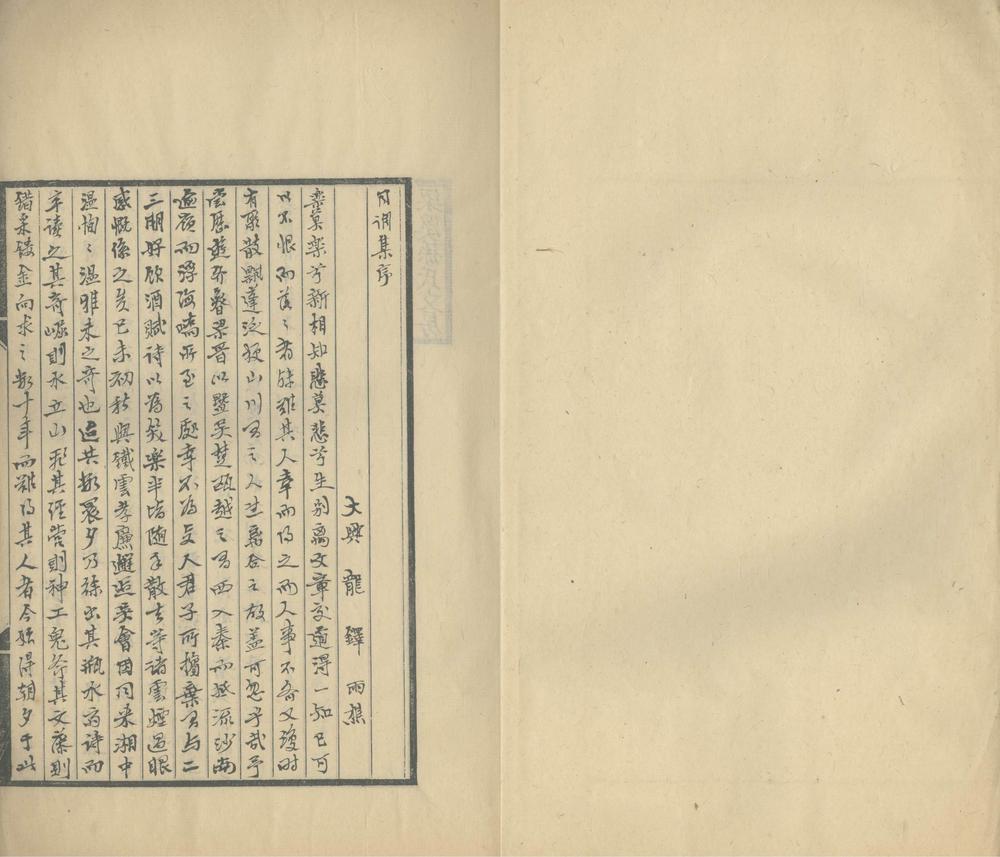 同調集序
大興龍鐸雨樵
樂莫樂兮新相知悲莫悲兮生別離文章交道得一知己可
以不恨而落々者殊難其人幸而得之而人事不齊又復時
有聚散飄蓬泛梗山川間之人生離合之故盖可忽乎哉予
嘗歷遊齊魯梁晉以暨吳楚甌越之間西入秦而抵流沙南
逾嶺而浮海嶠所至之處幸不為文人君子所擯棄間與二
三朋好飲酒賦詩以為笑樂半皆隨手散去等諸雲煙過眼
感慨係之矣己未初秋與鐵雲孝廉邂逅焉會因同來湘中
溫恂々溫雅未之奇也迨共數晨夕乃稌出其瓶水齋詩而
卒讀之其奇崛則水立山飛其經營則神工鬼斧其文藻則
錯采鏤金向求之數十年而難得其人者今始得朝夕于此